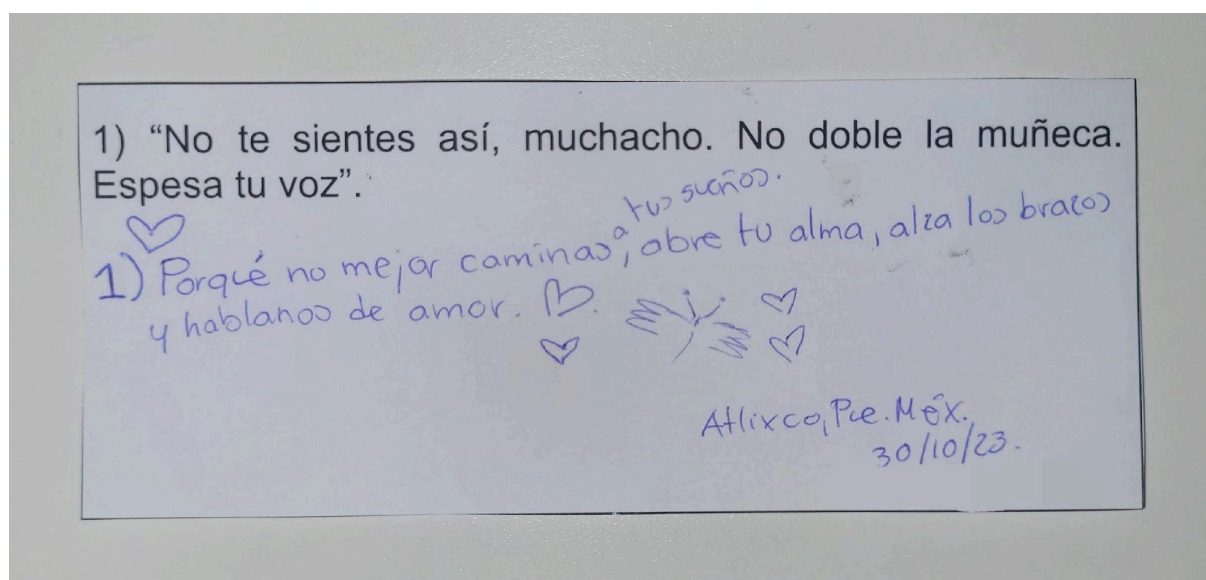 1) “No te sientes así, muchacho. No doble la muñeca.
Espesa tu voz”.
1) Porqué no mejor caminas a tus sueños., abre tu alma, alza los brazos
y hablanos de amor.
Atlixco, Pue. Méx.
30/10/23.